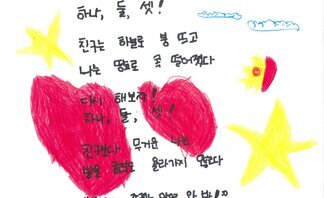 하나, 둘, 셋!
친구는 하늘로 붕 뜨고
나는 땅으로 쿵 떨어졌다
다시 해보자!
하나, 둘, 셋!
친구보다 무거운 나는
발을 굴러도 올라가지 않는다